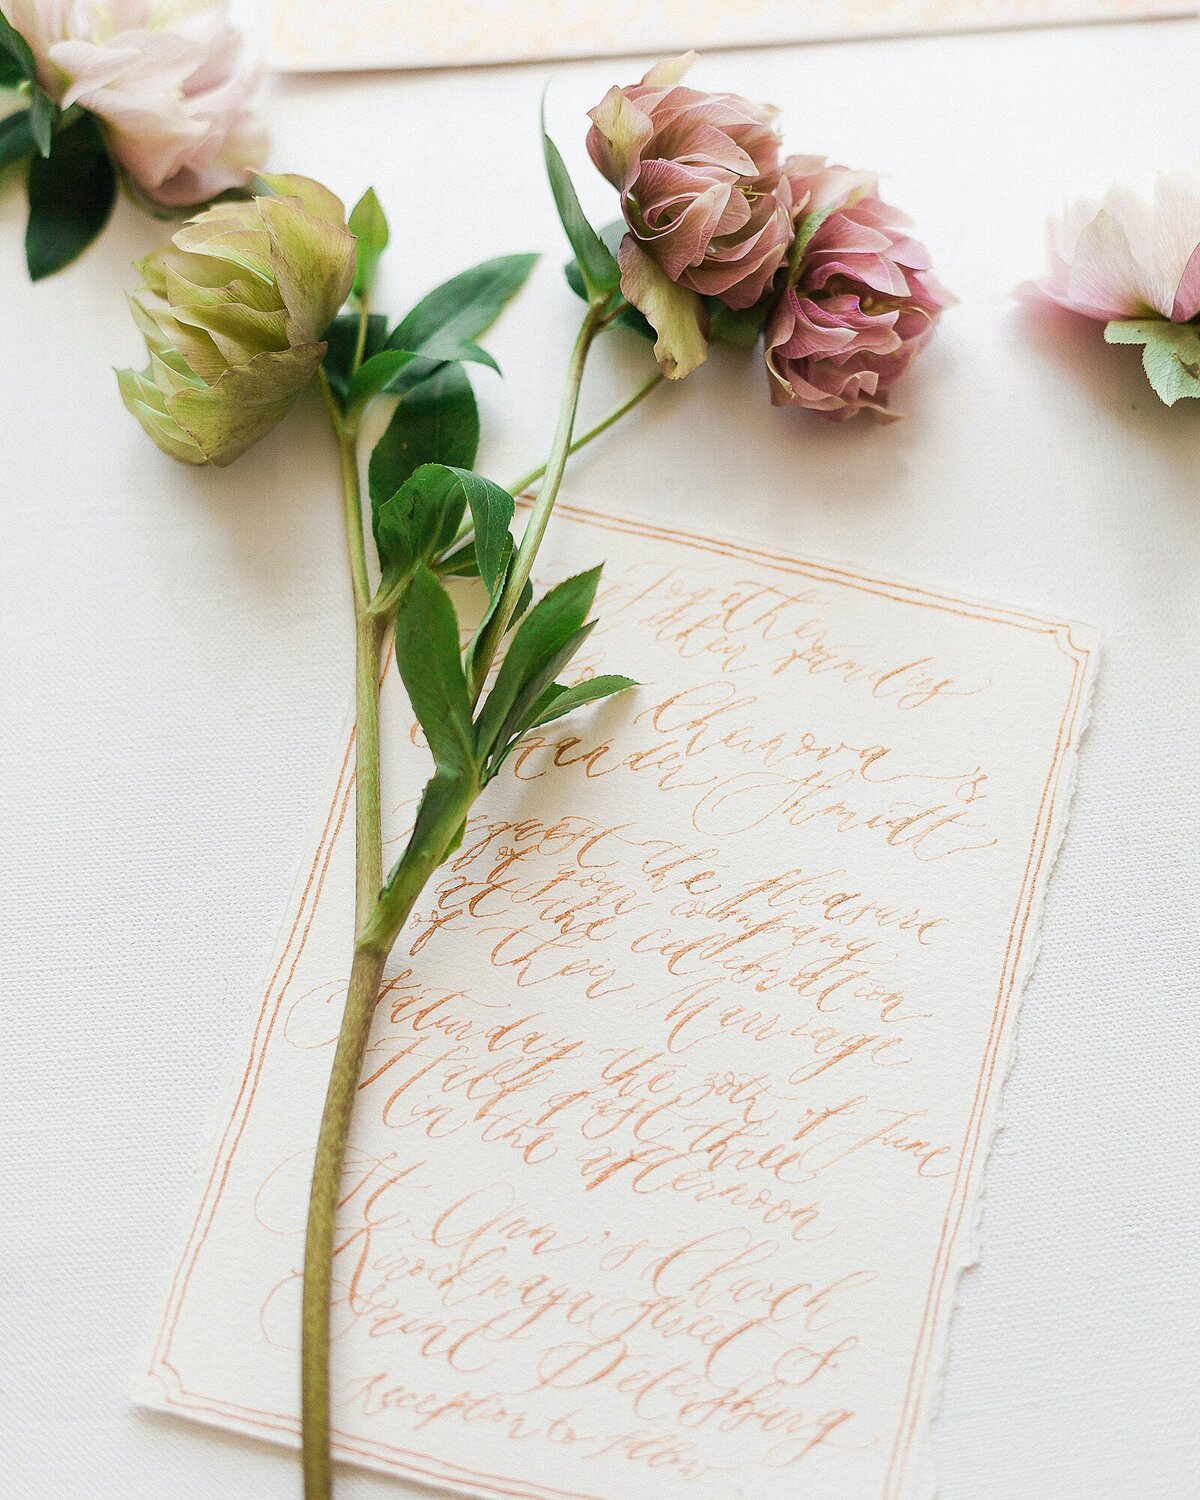 Together
with their families
Chernova &
Alexander Shmidt
request the pleasure
of your company
at the celebration
of their Marriage
Saturday the 30th of June
Half past three
in the afternoon
St Ann's Church
Kirochnaya Street 8
Saint Petersburg
Reception to follow